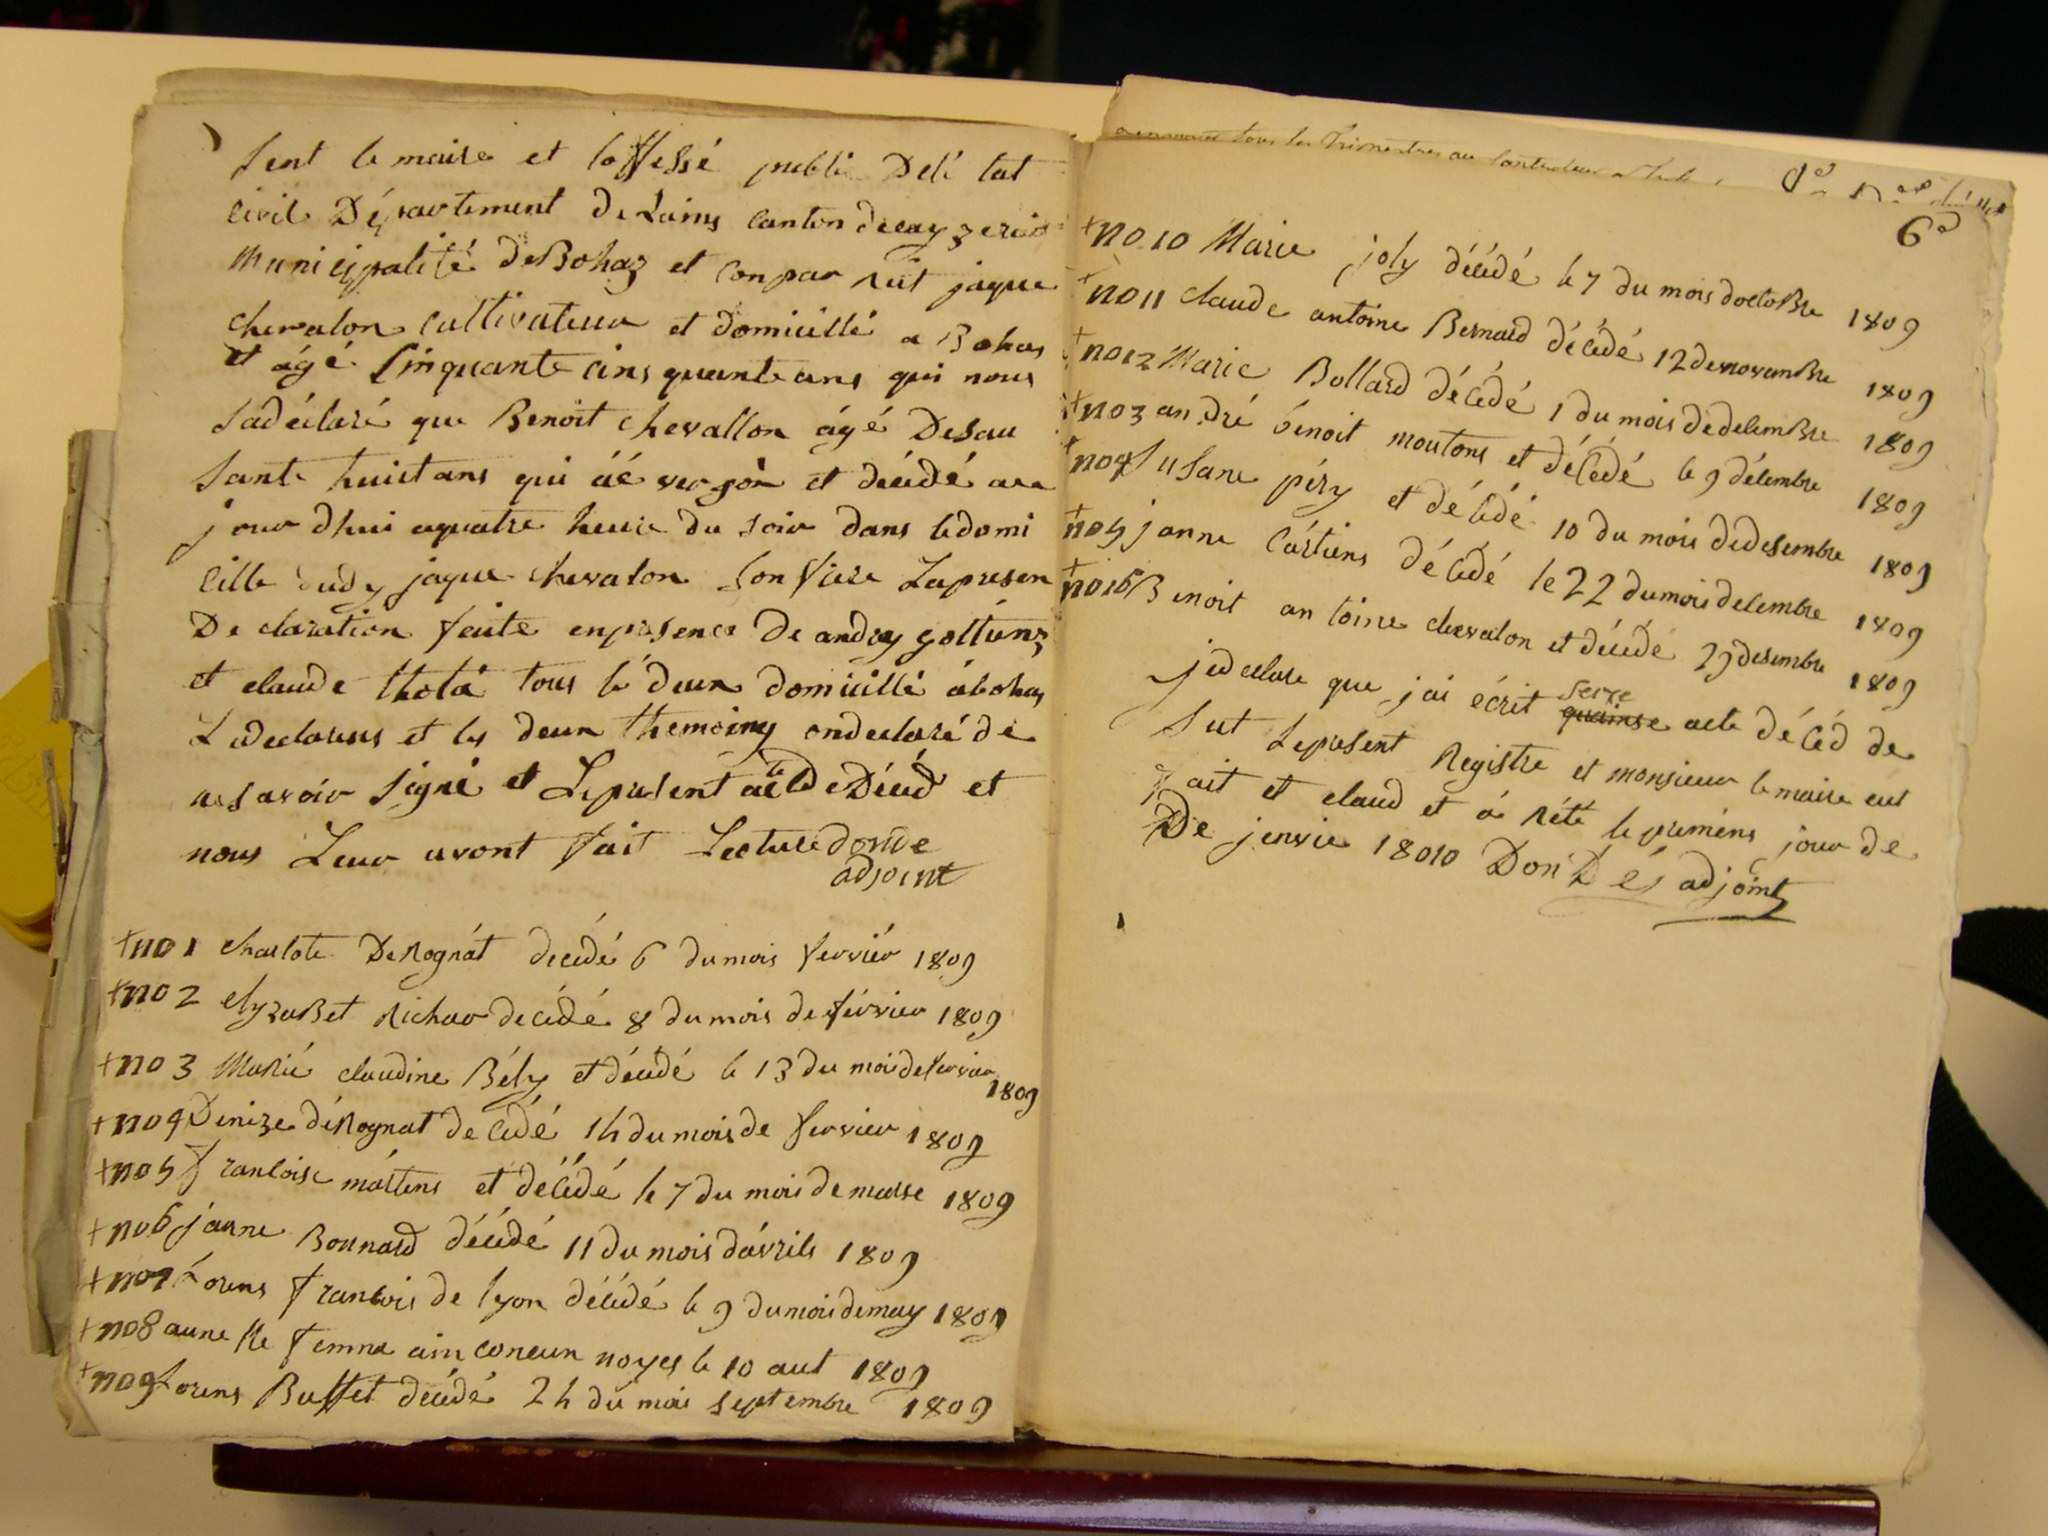 sent le maire et loffessé publi Delé tat
civil Département de Lains canton decayzeria
Municipalité de Bohaz et conpar ruit jaque
chevalon cultivateur et domicillé a Bohas
et ágé cinquante cins quante ans qui nous
sadéclaré que Benoit chevallon ágé Desau
sante huict ans qui áé verjon et décédé au
jour dhui aquatre heure du soir dans ledomi
cille dudy jaque chevalon son frere Lapresen
De claration feite enpresence De andrey gottuns
et claude thola tous lé deux domicillé ábohas
Ladeclarens et les deux themoins ondeclaré de
ne savoir signé et Lepresent acte de Décéd et
nous Leur avont fait Lecture donde
adjoint
+no 1 charlote Derognát decédé 6 du mois fervriér 1809
+no 2 elyzaBet Richar decédé 8 du mois de février 1809
+no 3 Marié claudine Bély et décédé le 13 du mois defervier
1809
+no 4 Denize dérognat decédé 14 du mois de fervier 1809
+no 5 francoise máttens et décédé le 7 du mois de marse 1809
+no 6 janne Bonnard décédé 11 du mois dávrils 1809
+no 7 Lorens francois de lyon décédé le 9 du mois demay 1809
+no 8 aune Me femne ain coneun noyes le 10 aut 1809
+no 9 Lorens Buffet décédé 24 du mois septembre 1809
a envoyer tous les Trimestres au
6e
+no 10 Marie joly décédé le 7 du mois doctoBre 1809
+no 11 claude antoine Bernard décédé 12 denovanBre 1809
+no 12 Marie Bollard décédé 1 du mois dedecemBre 1809
+no 3 andré bénoit moutons et décédé le 9 décembre 1809
+no 4 susane péry et décédé 10 du mois dedesembre 1809
+no 5 janne cartiens décédé le 22 dumois decembre 1809
+no 16 Benoit antoine chevalon et décédé 29 desembre 1809
jedeclare que jai écrit quainse serze acte décéd de
sut Lepresent Registre et monsieur le maire eut
fait et claud et á rété le premiéns jour de
De jenvie 18010 Don Dés adjoint